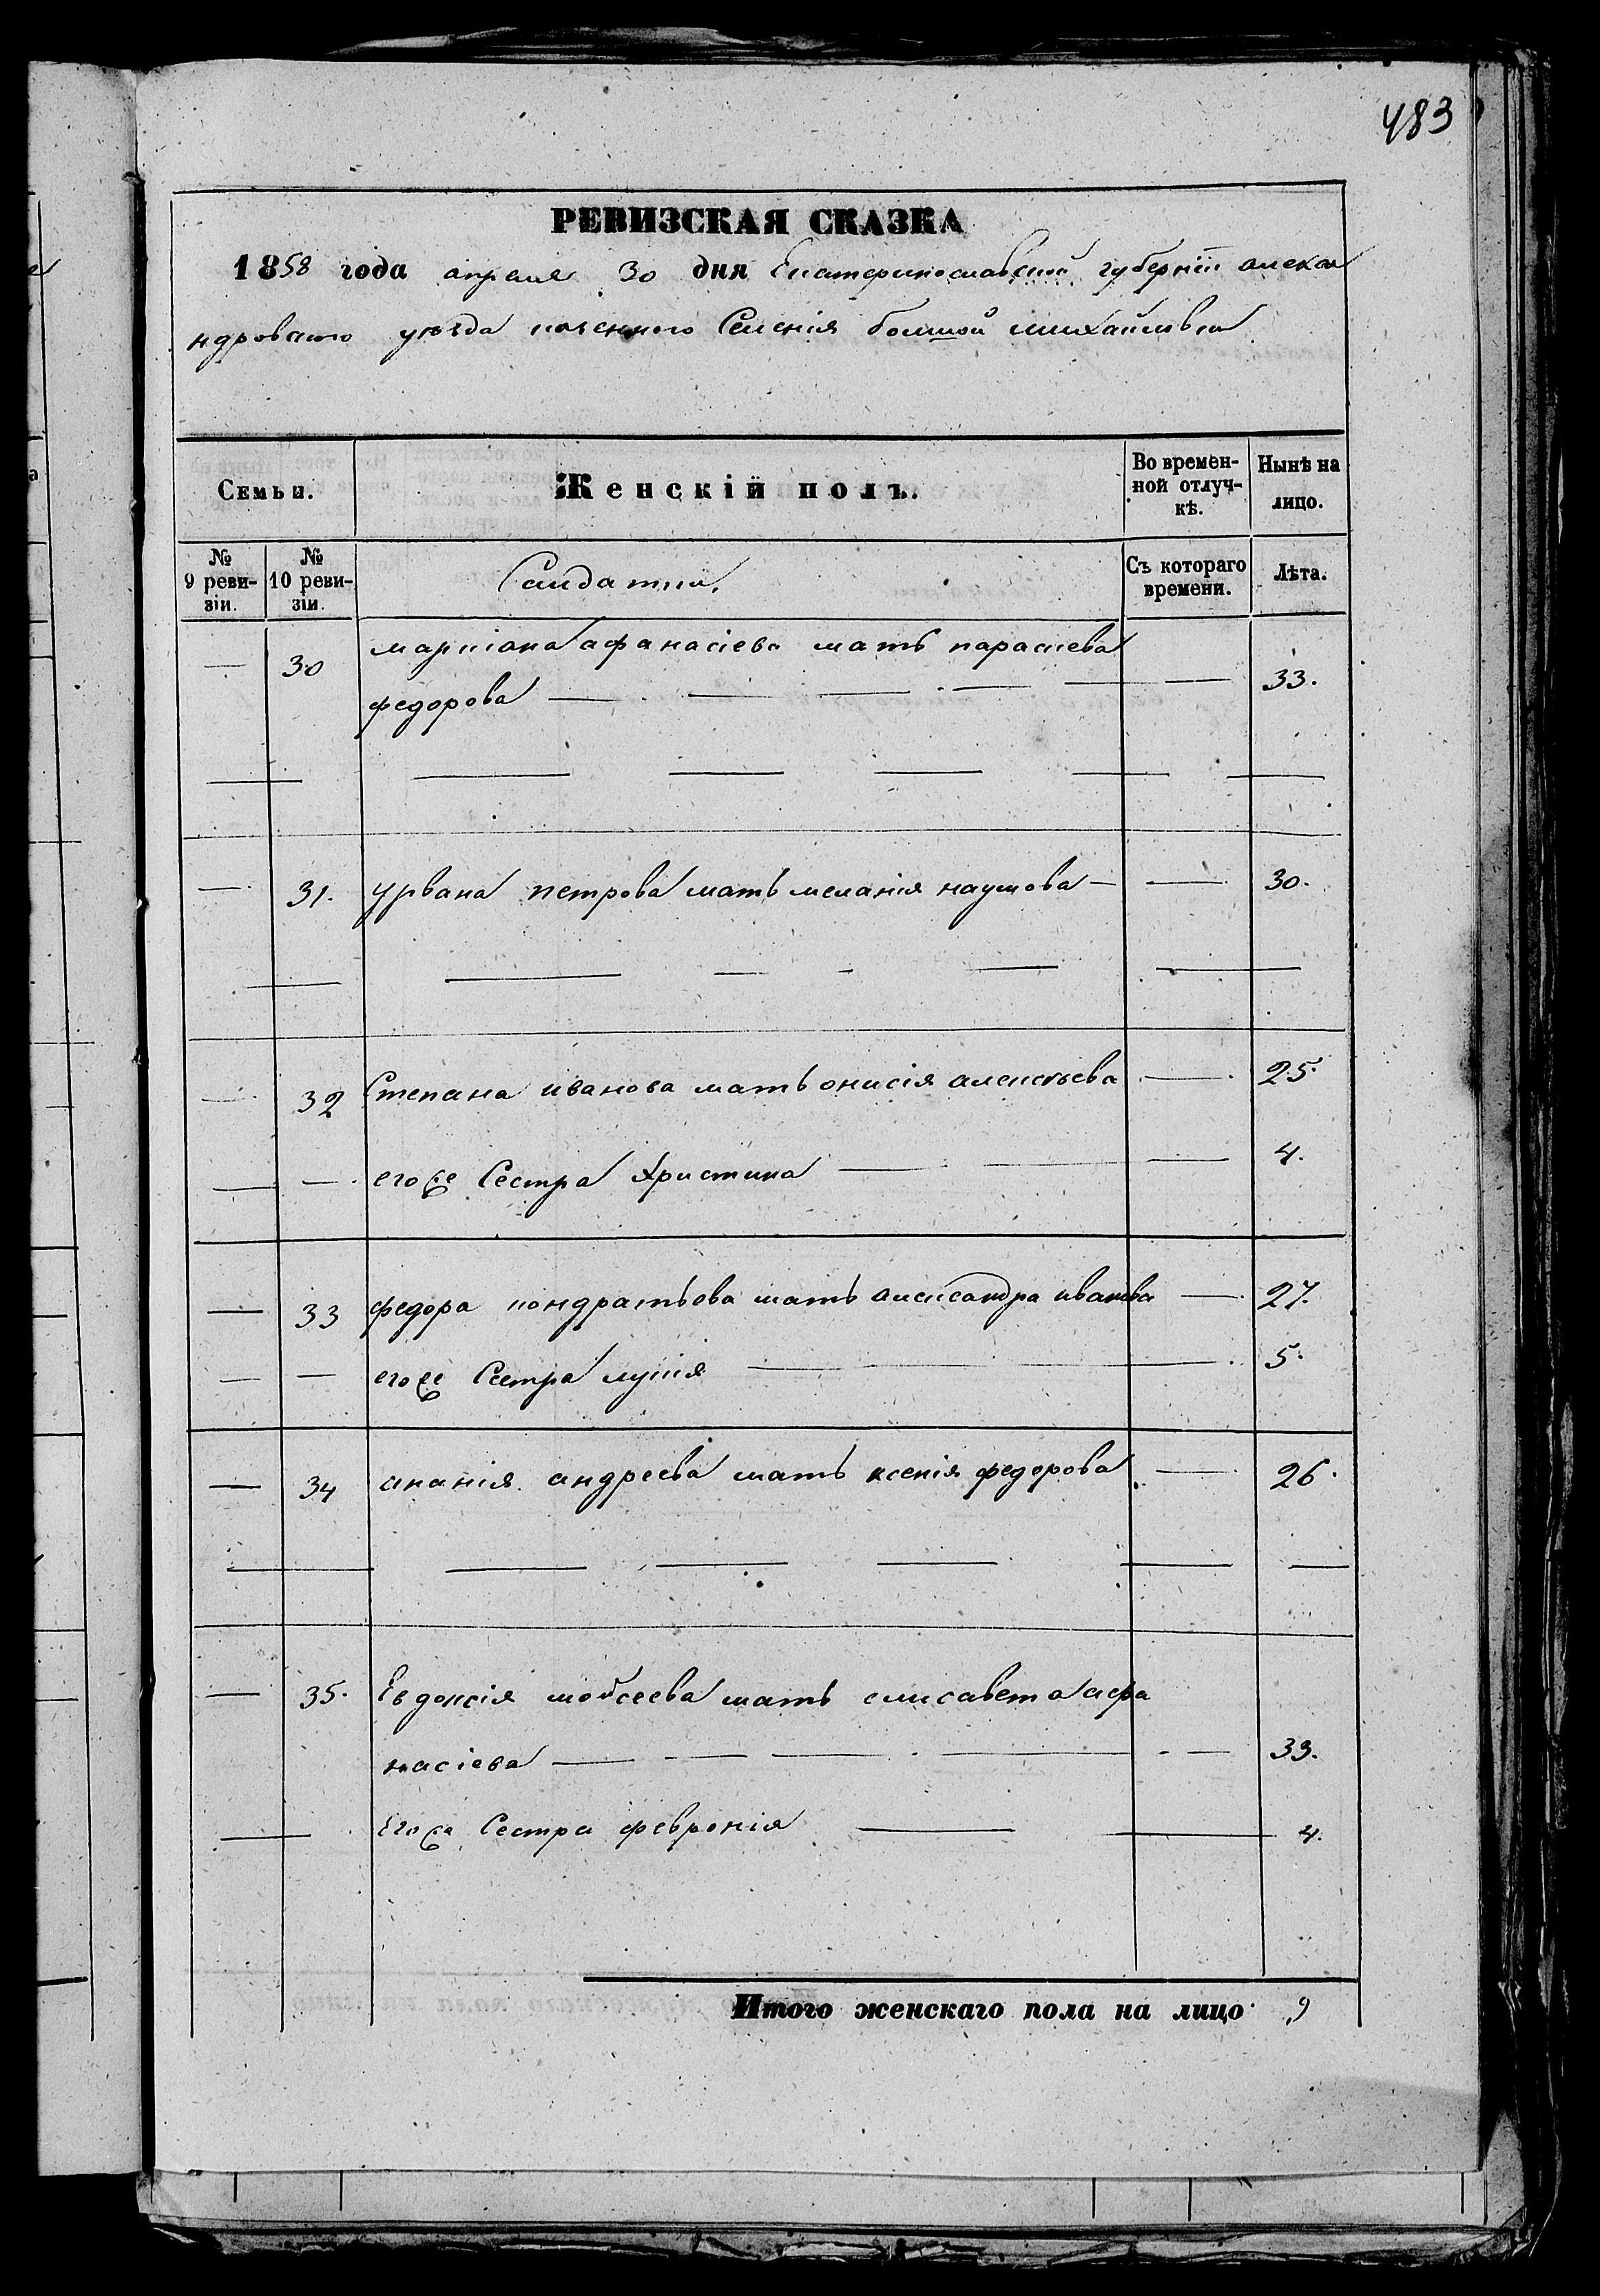 483
РЕВИЗСКАЯ СКАЗКА
1858 года апреля 30 дня Екатеринославской губерніи алекса
ндровского уѣзда казенного Селенія болшой михайловки
Семьи. Женскій полъ. Во времен-ной отлуч-кѣ. Нынѣ на лицо.
№ 9 реви-зіи. № 10 реви-зіи. Салдатки. Съ котораго времени. Лѣта.
— 30 маркіана афанасіева мать параскева
федорова — — — — — — 33.
— 31. урвана петрова мать меланія наумова — — 30.
— 32 Степана иванова мать онисія алексѣева — 25.
— — егоже Сестра Христина — — — 4.
— 33 федора кондратьева мать александра иванова — 27.
— — егоже Сестра лукія — — 5.
— 34 ананія андреева мать ксенія федорова — 26.
— 35. Евдоксія мойсеева мать елисавета афа
насіева — — — — — — 33.
— Егоже Сестра февронія — — 4.
Итого женскаго пола на лицо 9